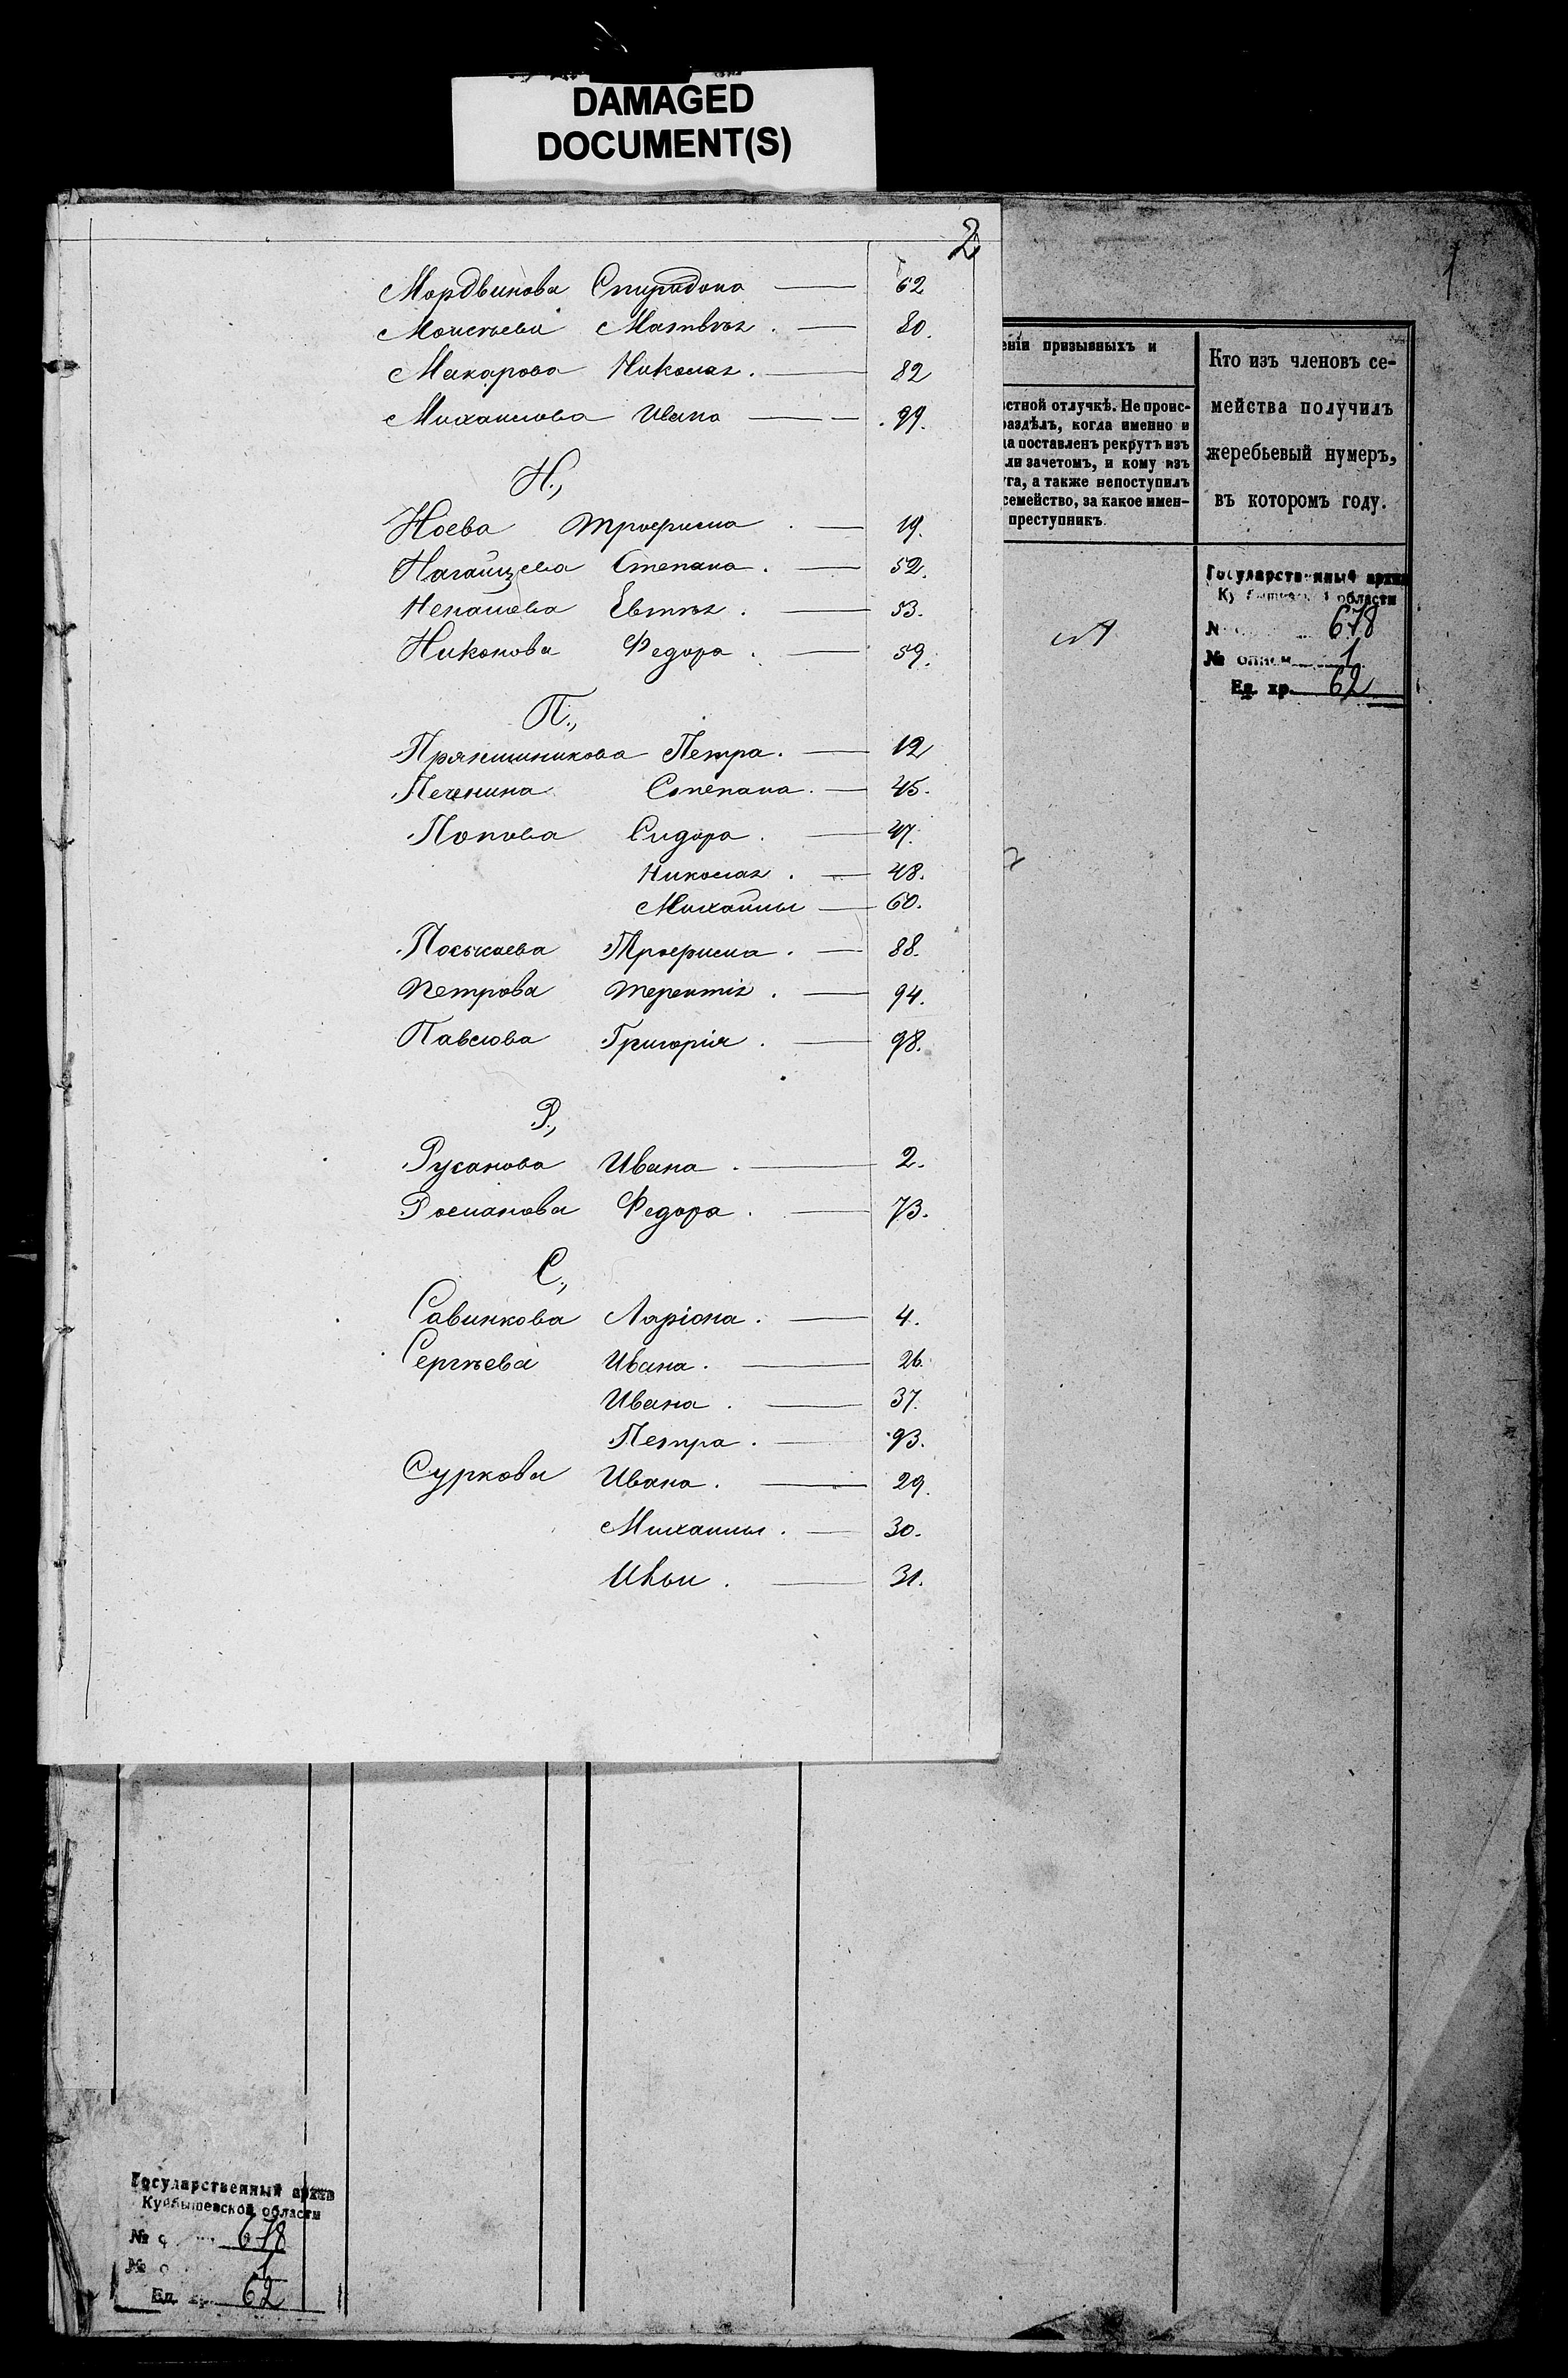 DAMAGED
DOCUMENT(S)
2
Мордвинова Спиридона 62
Моисѣева Матвѣя 80.
Макарова Николая 82
Михаилова Ивана 99.
Н.,
Ноева Трофима 19.
Нагайцева Степана 52.
Ненашева Евтѣя 53.
Никонова Федора 59.
П.,
Прянишникова Петра 12
Печенина Степана 45.
Попова Сидора 47.
Николая 48.
Михайлы 60.
Трофима 88.
Петрова Терентія 94.
Павлова Григорія 98.
Р.,
Русанова Ивана 2.
Романова Федора 73.
С.,
Савинкова Ларіона 4.
Сергѣева Ивана 26.
Ивана 37.
Петра 93.
Суркова Ивана 29.
Михаилы 30.
Ильи 31.
1
еніи призывныхъ и
стной отлучкѣ. Не проис-
раздѣлъ, когда именно и
да поставленъ рекрутъ изъ
ли зачетомъ, и кому изъ
уга, а также непоступилъ
семейство, за какое имен-
преступникъ.
Кто изъ членовъ се-
мейства получилъ
жеребьевый нумеръ,
въ которомъ году.
Государственный архив
Куйбышевской области
№ 678
№ описи 1
Ед. хр. 62
Государственный архив
Куйбышевской области
№ 678
№ 1
Ед. хр. 62